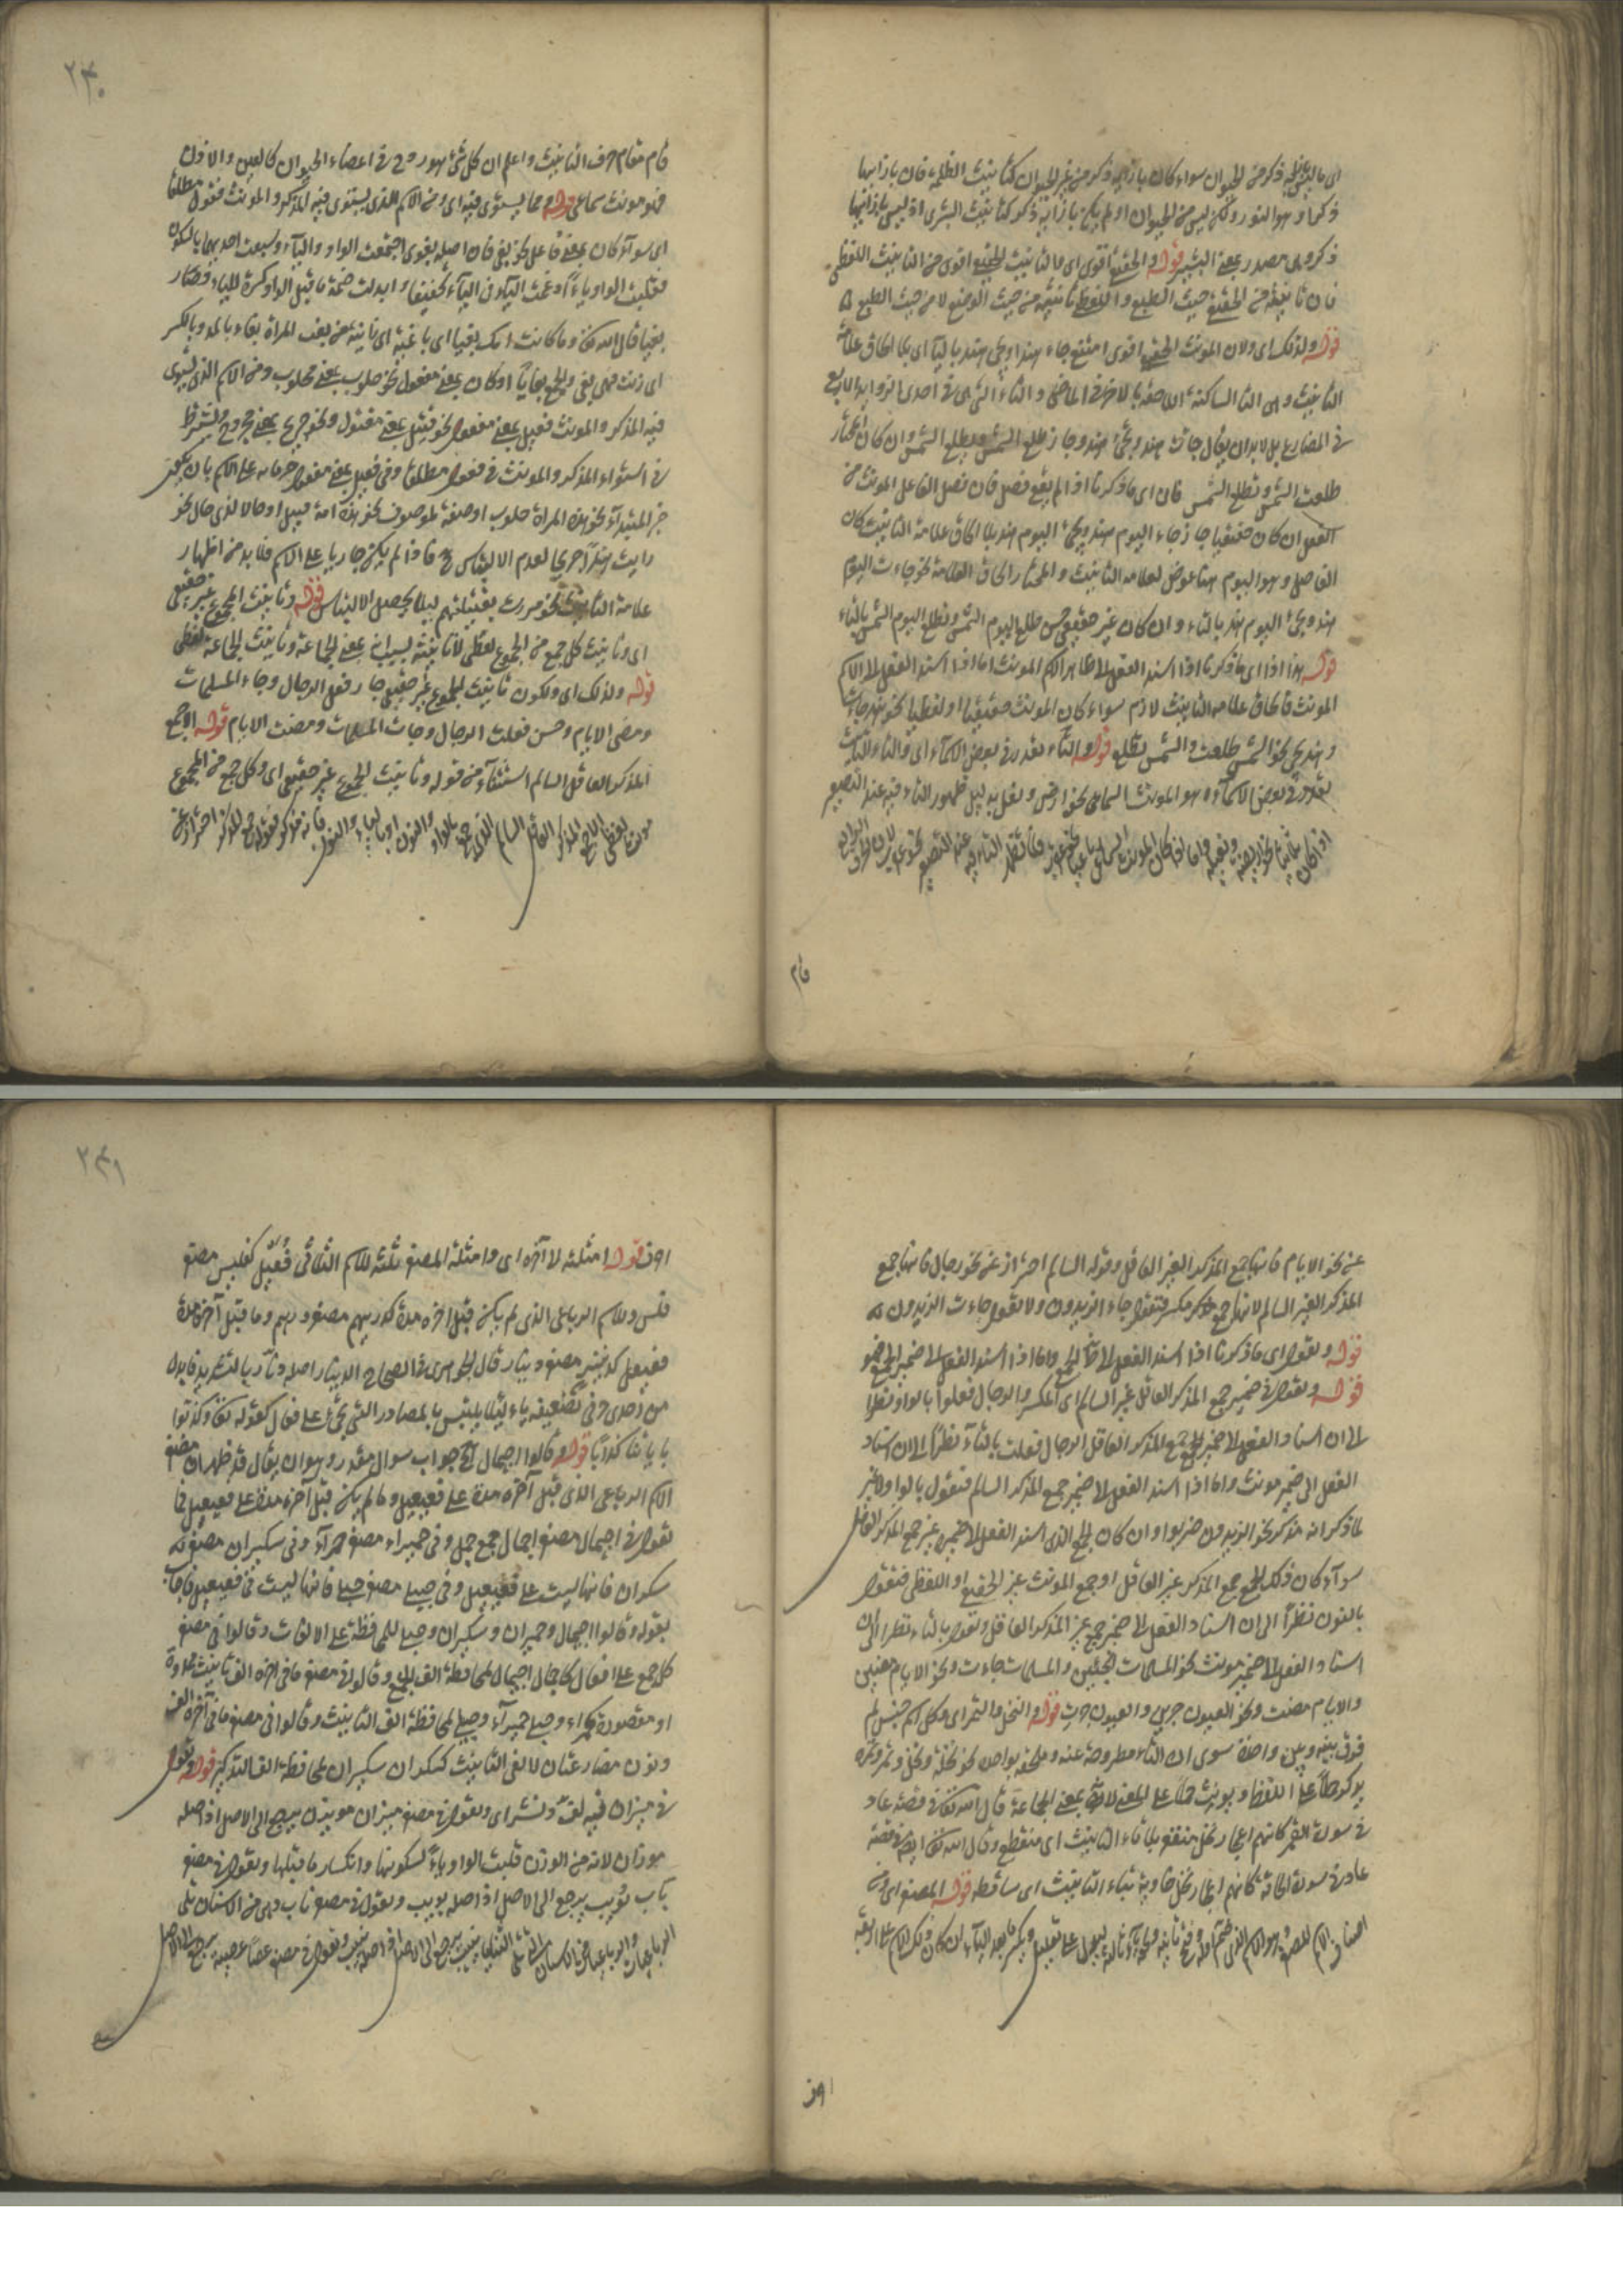 ذكرا وهو النور ولكن ليس من الحيوان او لم يكن بازائه ذكر كتأنيث البشرى اذ ليس بازائها
ذكر وهى مصدر بمعنى البشير قوله والحقيقى اقوى اى والتأنيث الحقيقى اقوى من التأنيث اللفظى
فان تأنيثه من حيث الطبع واللفظى تأنيثه من حيث الوضع لا من حيث الطبع
قوله ولذلك اى ولان المونث الحقيقى اقوى امتنع جاء هند ويجئ هند بالياء اى بلا الحاق علامة
التأنيث وهى التاء الساكنة اللاحقة بالاخر فى الماضى والتاء التى هى احدى الزوايد الاربع
فى المضارع بل لا بد ان يقال جاءت هند وتجئ هند وجاز طلع الشمس ويطلع الشمس وان كان المختار
طلعت الشمس وتطلع الشمس فان اى ما ذكرنا اذا لم يقع فصل فان فصل الفاعل المونث من
الفعل ان كان حقيقيا جاز جاء اليوم هند ويجئ اليوم هند بلا الحاق علامة التأنيث كان
الفاصل وهو اليوم هنا عوض لعلامة التأنيث والمختار الحاق العلامة نحو جاءت اليوم
هند وتجئ اليوم هند بالتاء وان كان غير حقيقى حسن طلع اليوم الشمس وتطلع اليوم الشمس بالتاء
قوله هذا اذا اى ما ذكرنا اذا اسند الفعل الى ظاهر الاسم المونث اما اذا اسند الفعل الى الاسم
المونث فالحاق علامة التأنيث لازم سواء كان المونث حقيقيا او لفظيا نحو هند جاءت
وهند تجئ نحو الشمس طلعت والشمس تطلع قوله والتاء تقدر فى بعض الاسماء اى والتاء للتأنيث
تقدر فى بعض الاسماء وهو المونث السماعى نحو ارض ونعل بدليل ظهور التاء فيه عند التصغير
قام
٢٤٠
قام مقام حرف التأنيث واعلم ان كل شئ هو زوج فى اعضاء الحيوان كالعين والاذن
فهو مونث سماعى قوله ومما يستوى فيه اى ومن الاسم الذى يستوى فيه المذكر والمونث فعول مطلقا
اى سواء كان بمعنى فاعل نحو بغى فان اصله بغوى اجتمعت الواو والياء وسبقت احديهما بالسكون
فقلبت الواو ياء وادغمت الياء فى الياء تخفيفا وابدلت ضمة ما قبل الواو كسرة للياء فصار
بغيا قال الله تع وما كانت امك بغيا اى باغية اى زانية من بغت المراة بغاء بالمد وبالكسر
اى زنت فهى بغى والجمع بغايا او كان بمعنى مفعول نحو حلوب بمعنى محلوب ومن الاسم الذى يستوى
فيه المذكر والمونث فعيل بمعنى مفعول نحو قتيل بمعنى مقتول ونحو جريح بمعنى مجروح
فى استواء المذكر والمونث فى فعول مطلقا وفى فعيل بمعنى مفعول جريانه على الاسم بان يكون
خبر المبتدأ نحو هذه المراة حلوب او صفة لموصوف نحو هذه امة قتيل او حالا لذى حال نحو
رأيت هندا جريحا لعدم الالتباس ح فاذا لم يكن جاريا على الاسم فلا بد من اظهار
علامة التأنيث نحو مررت بقتيلتهم لئلا يحصل الالتباس قوله وتأنيث الجموع غير حقيقى
اى وتأنيث كل جمع من الجموع لفظى لان تأنيثه بسبب انه بمعنى الجماعة وتأنيث الجماعة لفظى
قوله ولذلك اى ولكون تأنيث الجموع غير حقيقى جاز فعل الرجال وجاء المسلمات
ومضى الايام وحسن فعلت الرجال وجاءت المسلمات ومضت الايام قوله الا جمع
المذكر العاقل السالم استثناء من قوله وتأنيث الجموع غير حقيقى اى وكل جمع من الجموع
عن نحو الايام فانها جمع المذكر الغير العاقل وقوله السالم احتراز عن نحو رجال فانها جمع
المذكر الغير السالم لانها جمع مذكر مكسر فتقول جاء الزيدون ولا تقول جاءت الزيدون
قوله وتقول اى ما ذكرنا اذا اسند الفعل الى الجمع واما اذا اسند الفعل الى ضمير الجمع
قوله وتقول فى ضمير جمع المذكر العاقل غير السالم اى المكسر والرجال فعلوا بالواو نظرا
الى ان اسناد الفعل الى ضمير الجمع المذكر العاقل الرجال فعلت بالتاء نظرا الى ان اسناد
الفعل الى ضمير مونث واما اذا اسند الفعل الى ضمير جمع المذكر السالم فتقول بالواو لا غير
لما ذكر انه مذكر نحو الزيدون ضربوا وان كان الجمع الذى اسند الفعل الى ضميره غير جمع المذكر العاقل
سواء كان ذلك الجمع جمع المذكر غير العاقل او جمع المونث غير الحقيقى او اللفظى فتقول
بالنون نظرا الى ان اسناد الفعل الى ضمير جمع غير المذكر العاقل وتقول بالتاء نظرا الى ان
اسناد الفعل الى ضمير مونث نحو المسلمات جئن والمسلمات جاءت ونحو الايام مضين
والايام مضت ونحو العيون جرين والعيون جرت قوله والنخل والتمر اى وكل اسم جنس لم
فرق بينه وبين واحده سوى ان التاء مطروحة عنه وملحقة بواحده نحو نخلة ونخل وتمر وتمرة
يذكر حملا على اللفظ ويونث حملا على المعنى لانه بمعنى الجماعة قال الله تع فى قصة عاد
فى سورة القمر كانهم اعجاز نخل منقعر بلا تاء التأنيث اى منقطع وقال الله تع ايضا فى قصة
عاد فى سورة الحاقة كانهم اعجاز نخل خاوية بتاء التأنيث اى ساقطة قوله المصغر اى ومن
اوز
٢٤١
قوله امثلته الى آخره اى وامثلة المصغر ثلثة للاسم الثلاثى فُعَيل كفليس مصغر
فلس وللاسم الرباعى الذى لم يكن قبل اخره مدة كدريهم مصغر درهم وما قبل آخره مدة
فعيعيل كدنينير مصغر دينار قال الجوهرى فى الصحاح الدينار اصله دنار بالتشديد فابدل
من احدى حرفى تضعيفه ياء لئلا يلتبس بالمصادر التى تجئ على فعال كقوله تع وكذبوا
باياتنا كذابا قوله وقالوا اجيمال الخ جواب سوال مقدر وهو ان يقال قد ظهر ان مصغر
الاسم الرباعى الذى قبل آخره مدة على فعيعيل وما لم يكن قبل آخره مدة على فعيعل فما
تقول فى اجيمال مصغر اجمال جمع جمل وفى حميراء مصغر حمراء وفى سكيران مصغر
سكران فانها ليست على فعيعيل وفى حبيلى مصغر حبلى فانها ليست فى فعيعل فاجاب
بقوله وقالوا اجيمال وحميراء وسكيران وحبيلى للمحافظة على الالفات وقالوا فى مصغر
كل جمع على افعال كاجمال اجيمال لمحافظة الف الجمع وقالوا فى مصغر ما فى اخره الف تأنيث ممدودة
او مقصورة كحمراء وحبلى حميراء وحبيلى لمحافظة الف التأنيث وقالوا فى مصغر ما فى آخره الف
ونون مضارعتان لالفى التأنيث كسكران سكيران لمحافظة الف التذكير قوله وتقول
فى ميزان فيه لف ونشر اى وتقول فى مصغر ميزان مويزين يرجع الى الاصل اذ اصله
موزان لانه من الوزن قلبت الواو ياء لسكونها وانكسار ما قبلها وتقول فى مصغر
باب بويب يرجع الى الاصل اذ اصله بوب وتقول فى مصغر ناب وهى من الاسنان تلى